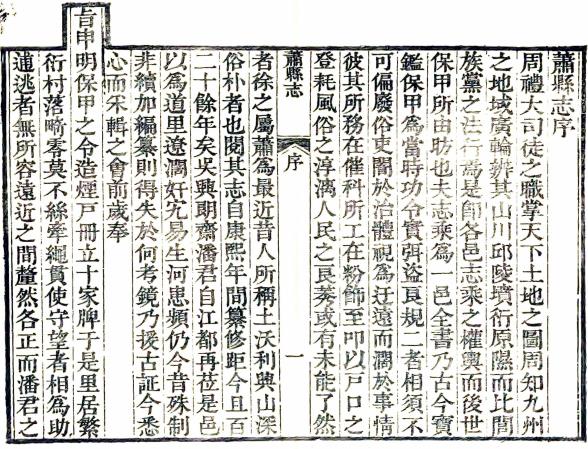 蕭縣志序
周禮大司徒之職掌天下土地之圖周知九州
之地域廣輪辨其山川邱陵墳衍原隰而比閭
族黨之法行焉是即各邑志乘之權輿而後世
保甲所由昉也夫志乘爲一邑全書乃古今寶
鑑保甲爲當時功令實弭盜良規二者相須不
可偏廢俗吏闇於治體視爲迂遠而濶於事情
彼其所務在催科所工在粉飾至叩以戶口之
登耗風俗之淳漓人民之良莠或有未能了然
蕭縣志
序
一
者徐之屬蕭爲最近昔人所稱土沃利輿山深
俗朴者也閱其志自康熙年間纂修距今且百
二十餘年矣吳興朗齋潘君自江都再蒞是邑
以爲道里遼濶奸宄易生河患頻仍今昔殊制
非續加編纂則得失於何考鏡乃援古証今悉
心而釆輯之會前歲奉
旨申明保甲之令造煙戶冊立十家牌子是里居繁
衍村落畸零莫不絲牽繩貫使守望者相爲助
逋逃者無所容遠近之間釐然各正而潘君之